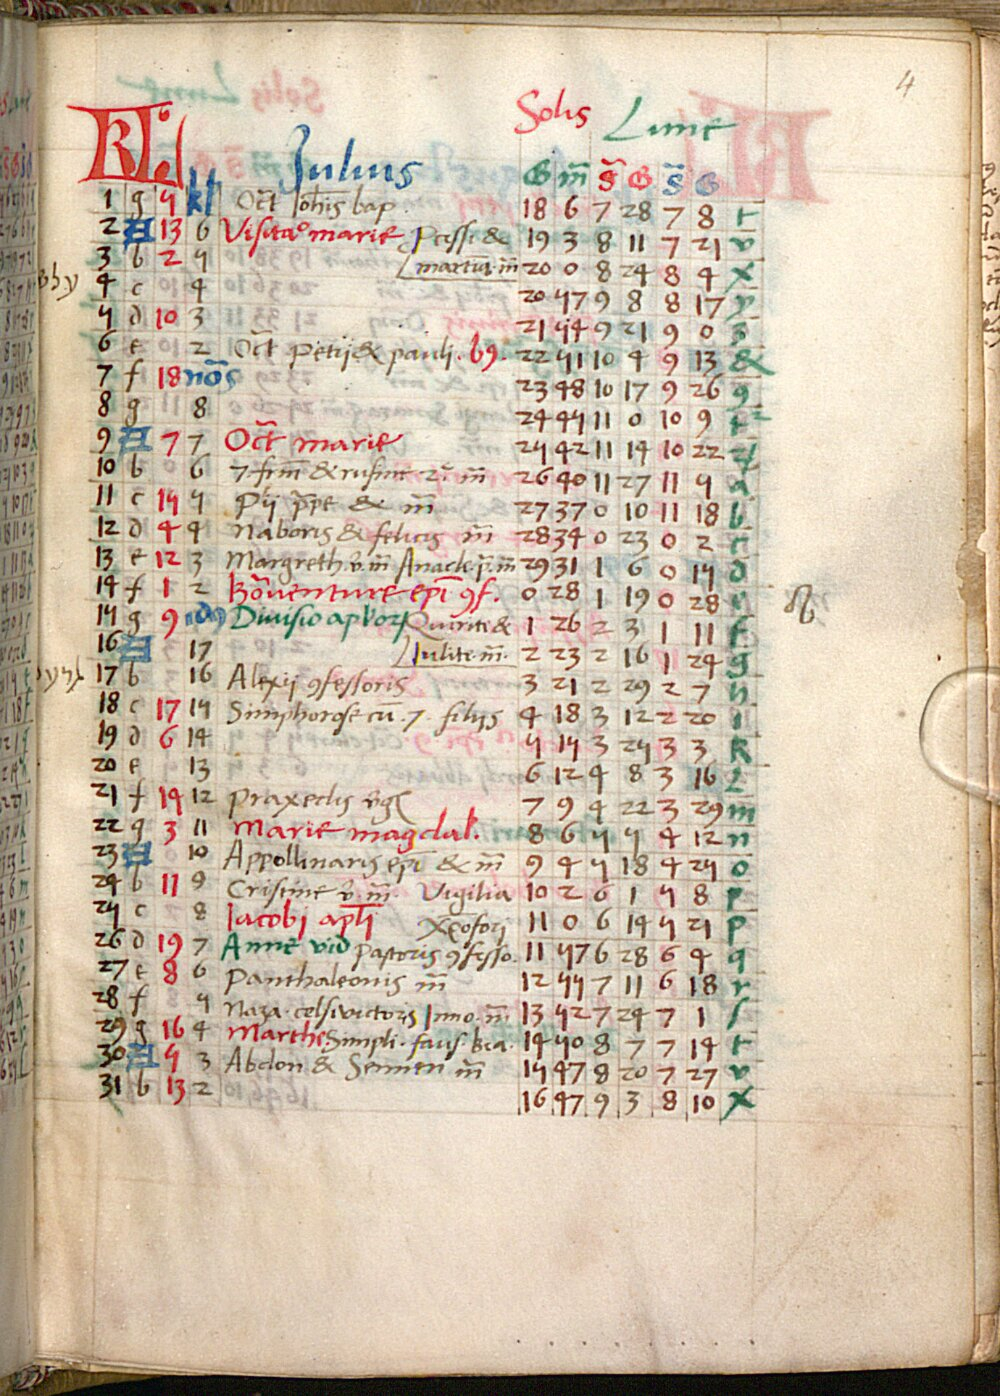 4
Solis Lune
KL
Iulius G m̄ s̄ G s̄ G
1 g 5 kl Oct̄ Ioh̄is bap 18 6 7 28 7 8 t
2 A 13 6 Visitac̄o marie Pcessi & 19 3 8 11 7 21 v
3 b 2 5 martia m̄ 20 0 8 24 8 4 x
4 c 4 20 57 9 8 8 17 y
5 d 10 3 21 54 9 21 9 0 z
6 e 2 Oct̄ Petri & pauli . 22 51 10 4 9 13 &
7 f 18 nōs 23 48 10 17 9 26 9
8 g 8 24 45 11 0 10 9
9 A 7 7 Oct̄ marie 25 42 11 14 10 22
10 b 6 7 frm̄ & rufine m̄ 26 40 11 27 11 5 a
11 c 15 5 Pij p̄pe & m̄ 27 37 0 10 11 18 b
12 d 4 4 Naboris & felicis m̄ 28 34 0 23 0 2 c
13 e 12 3 Margreth. v̄. m̄ Anacle. p̄. m̄ 29 31 1 6 0 15 d
14 f 1 2 Bōaventure ep̄i 9f. 0 28 1 19 0 28 e
15 g 9 idus Divisio aplorꝝ Quirite & 1 26 2 3 1 11 f
16 A 17 Iulite. m̄. 2 23 2 16 1 24 g
17 b 16 Alexij 9fessoris 3 21 2 29 2 7 h
18 c 17 15 Simphorose cū . 7 . filijs 4 18 3 12 2 20 i
19 d 6 14 5 15 3 25 3 3 k
20 e 13 6 12 4 8 3 16 l
21 f 14 12 Praxedis v̄gī 7 9 4 22 3 29 m
22 g 3 11 Marie magdal. 8 6 5 5 4 12 n
23 A 10 Appollinaris ep̄i & m̄ 9 4 5 18 4 25 o
24 b 11 9 Cristine v̄. m̄. Vigilia 10 2 6 1 5 8 p
25 c 8 Iacobi ap̄li Xp̄ofori 11 0 6 14 5 21 p
26 d 19 7 Anne vid Pastoris 9fesso. 11 57 6 28 6 4 q
27 e 8 6 Panthaleonis m̄ 12 55 7 11 6 18 r
28 f 5 Naza. celsi victoris Inno. m̄ 13 52 7 24 7 1 s
29 g 16 4 Marthe Simpli. faus. bea. 14 50 8 7 7 14 t
30 A 5 3 Abdon & Sennen m̄ 15 47 8 20 7 27 v
31 b 13 2 16 47 9 3 8 10 x